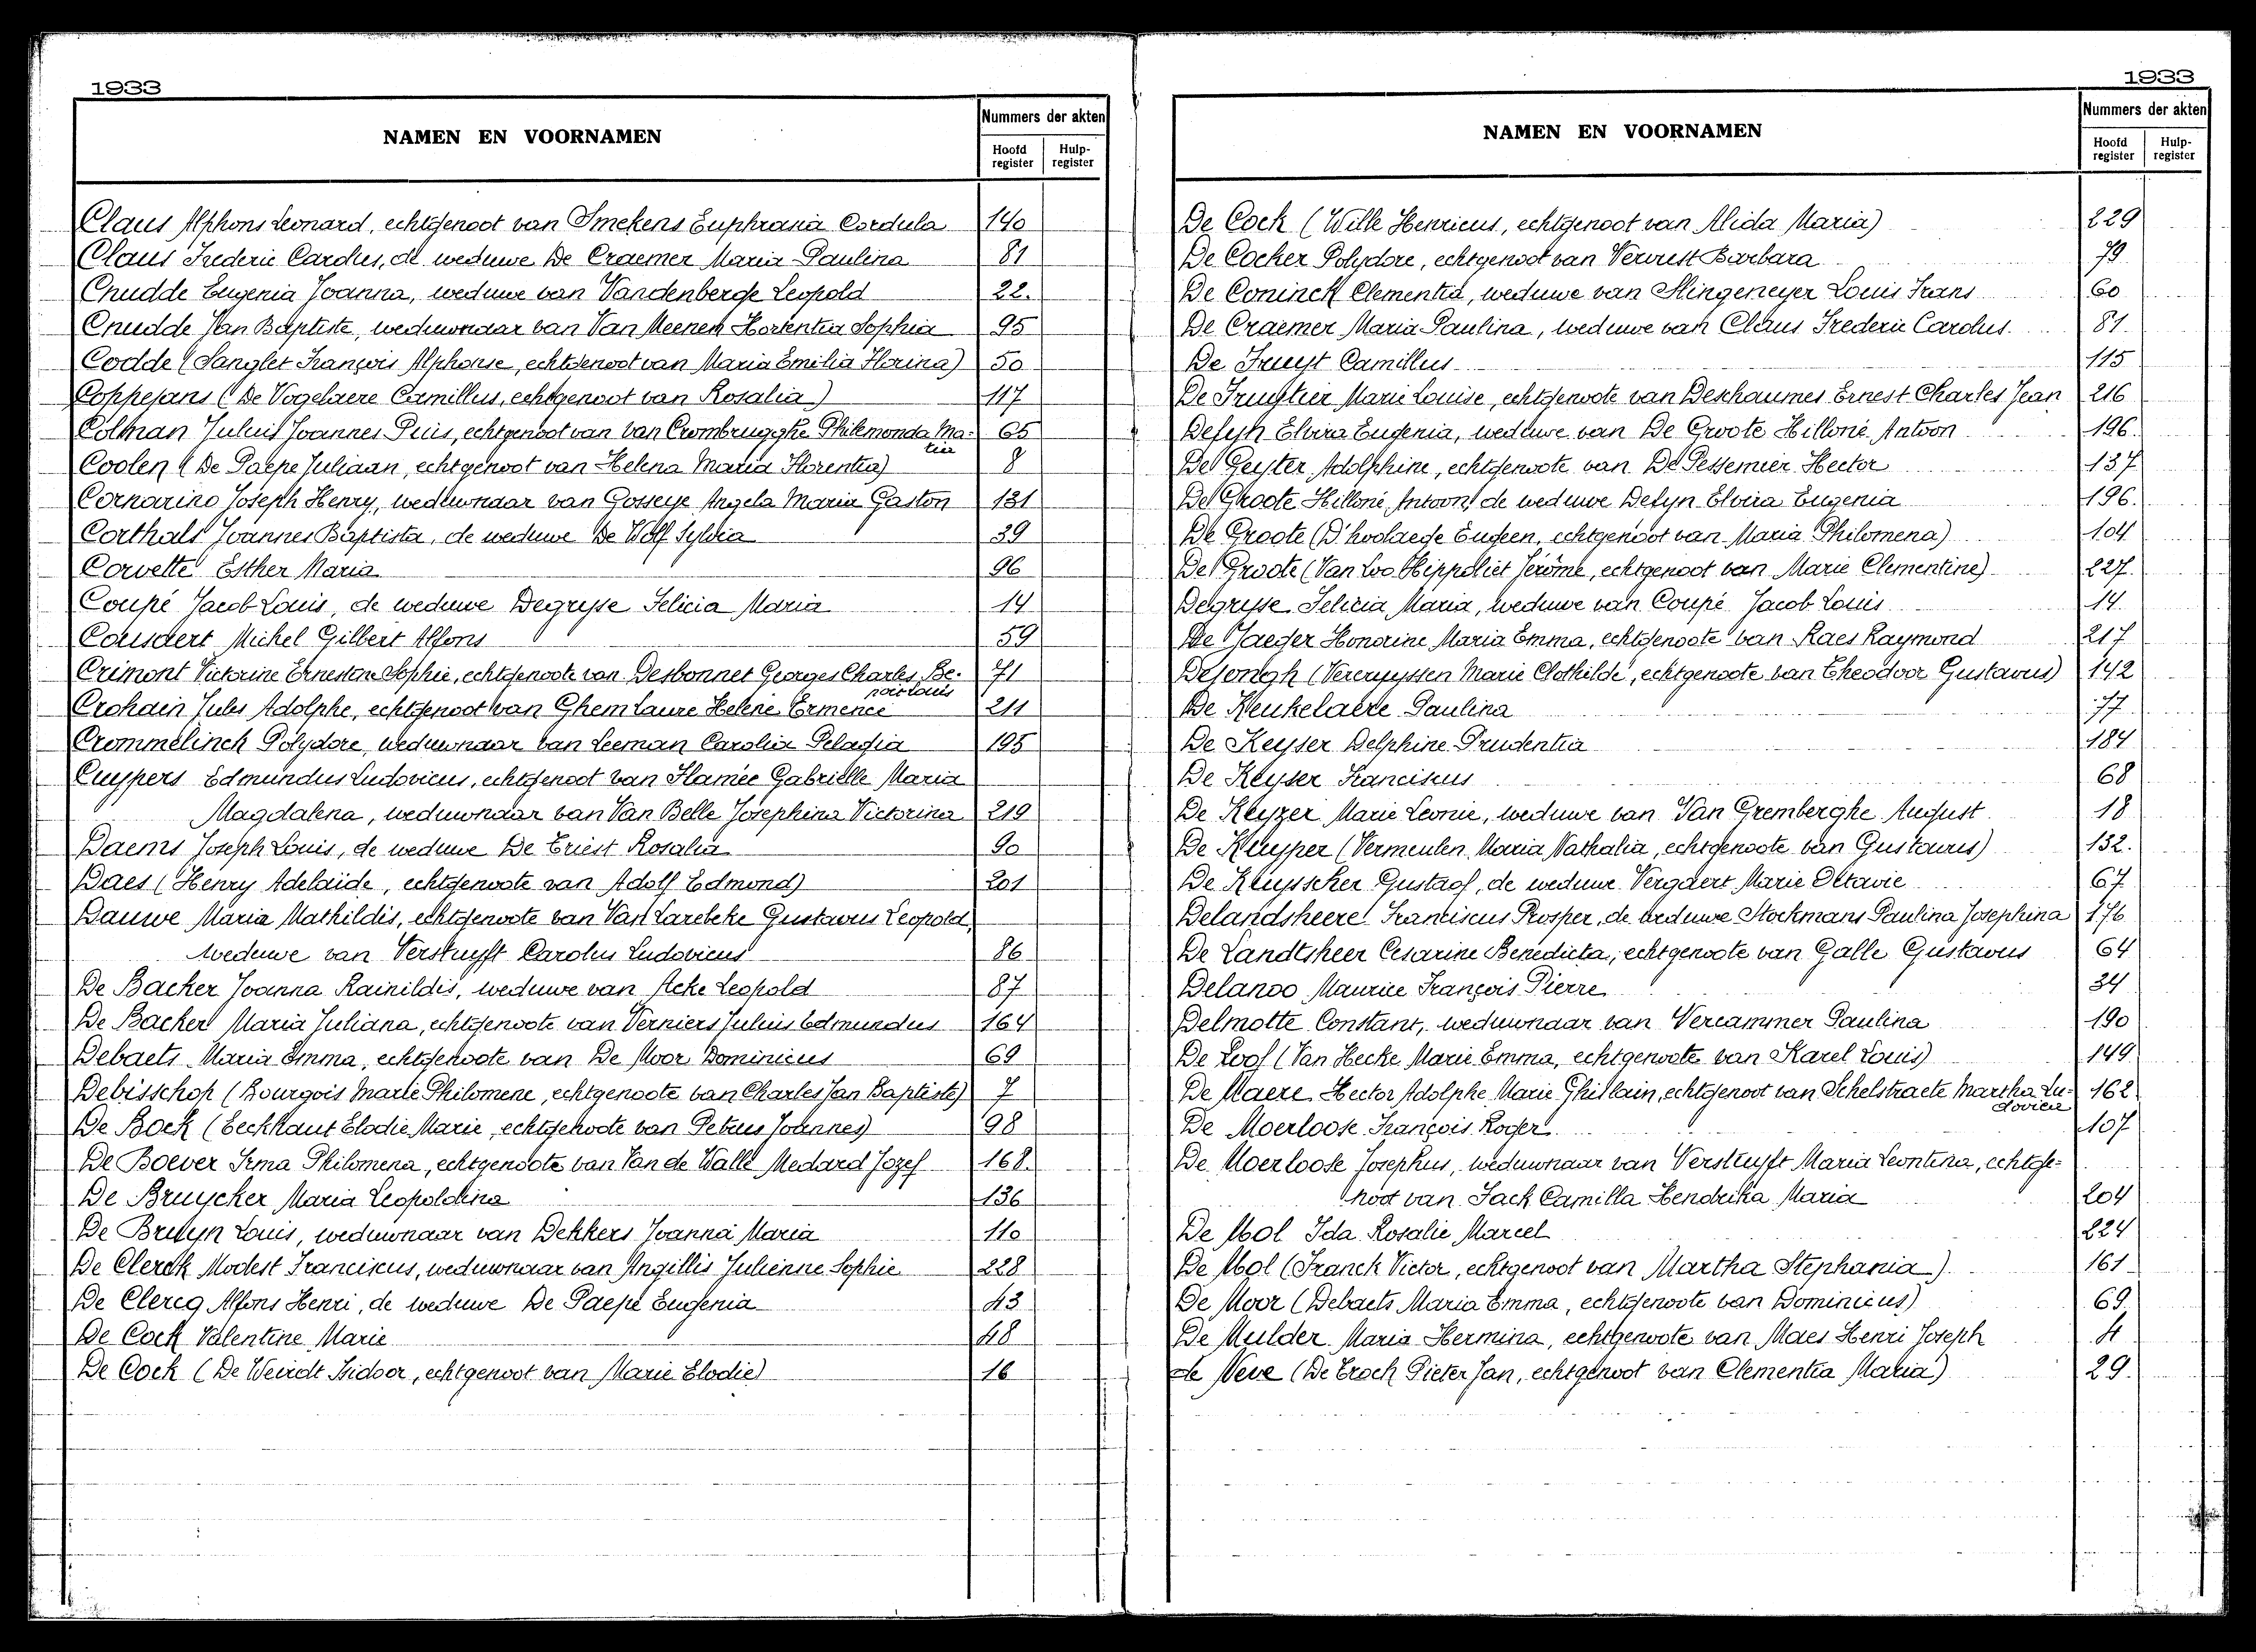 1933
NAMEN EN VOORNAMEN
Nummers der akten
Hoofd register
Hulp-register
Claus Alphons Leonard, echtgenoot van Smekens Euphrasia Cordula 140
Claus Frederic Carolus, de weduwe De Craemer Maria Paulina 81
Cnudde Eugenia Joanna, weduwe van Vandenberge Leopold 22.
Cnudde Jan Baptiste, weduwnaar van Van Meenen Hortentia Sophia 95
Codde (Sanglet François Alphonse, echtgenoot van Maria Emilia Florina) 50
Coppejans (De Vogelaere Camillus, echtgenoot van Rosalia) 117
Colman Julius Joannes Pius, echtgenoot van Van Crombrugghe Philemonda Ma- 65
tia
Coolen (De Paepe Juliaan, echtgenoot van Helena Maria Florentia) 8
Cornarino Joseph Henry, weduwnaar van Gosseye Angela Maria Gaston 131
Corthals Joannes Baptista, de weduwe De Wolf Sylvia 39
Corvette Esther Maria 96
Coupé Jacob Louis, de weduwe Degrysse Felicia Maria 14
Cousaert Michel Gilbert Alfons 59
Crimont Victorine Ernestine Sophie, echtgenoote van Desbonnet Georges Charles Be- 71
noit Louis
Crohain Jules Adolphe, echtgenoot van Ghem Laure Helene Ermence 211
Crommelinck Polydore, weduwnaar van Leeman Carolia Pelagia 195
Cuypers Edmundus Ludovicus, echtgenoot van Flamée Gabrielle Maria
Magdalena, weduwnaar van Van Belle Josephina Victorina 219
Daems Joseph Louis, de weduwe De Triest Rosalia 90
Daes (Henry Adelaide, echtgenoote van Adolf Edmond) 201
Dauwe Maria Mathildis, echtgenoote van Van Larebeke Gustavus Leopold,
weduwe van Verstuyft Carolus Ludovicus 86
De Backer Joanna Rainildis, weduwe van Acke Leopold 87
De Backer Maria Juliana, echtgenoote van Verniers Julius Edmundus 164
Debaets Maria Emma, echtgenoote van De Moor Dominicus 69
Debisschop (Bourgois Marie Philomene, echtgenoote van Charles Jan Baptiste) 7
De Bock (Eeckhaut Elodie Marie, echtgenoote van Petrus Joannes) 98
De Boever Irma Philomena, echtgenoote van Van de Walle Medard Jozef 168.
De Bruycker Maria Leopoldina 136
De Bruyn Louis, weduwnaar van Dekkers Joanna Maria 110
De Clerck Modest Franciscus, weduwnaar van Angillis Julienne Sophie 228
De Clercq Alfons Henri, de weduwe De Paepe Eugenia 43
De Cock Valentine Marie 48
De Cock (De Weirdt Isidoor, echtgenoot van Marie Elodie) 16
1933
NAMEN EN VOORNAMEN
Nummers der akten
Hoofd register
Hulp-register
De Cock (Wille Henricus, echtgenoot van Alida Maria) 229
De Cocker Polydore, echtgenoot van Verwest Barbara 79
De Coninck Clementia, weduwe van Slingeneyer Louis Frans 60
De Craemer Maria Paulina, weduwe van Claus Frederic Carolus 81.
De Fruyt Camillus 115
De Fruytier Marie Louise, echtgenoote van Deschaumes Ernest Charles Jean 216
Defyn Elvira Eugenia, weduwe van De Groote Hilloné Antoon 196.
De Geyter Adolphine, echtgenoote van De Pessemier Hector 137
De Groote Hilloné Antoon, de weduwe Defyn Elvira Eugenia 196.
De Groote (D'hoolaege Eugeen, echtgenoot van Maria Philomena) 104
De Groote (Van Loo Hippoliet Jérôme, echtgenoot van Marie Clementine) 227.
Degrysse Felicia Maria, weduwe van Coupé Jacob Louis 14
De Jaeger Honorine Maria Emma, echtgenoote van Raes Raymond 217
Dejongh (Vercruyssen Marie Clothilde, echtgenoote van Theodoor Gustavus) 142
De Keukelaere Paulina 77.
De Keyser Delphine Prudentia 184
De Keyser Franciscus 68
De Keyzer Marie Leonie, weduwe van Van Gremberghe August 18
De Kuyper (Vermeulen Maria Nathalia, echtgenoote van Gustavus) 132.
De Kuysscher Gustaaf, de weduwe Vergaert Marie Octavie 67
Delandsheere Franciscus Prosper, de weduwe Stockmans Paulina Josephina 176
De Landtsheer Cesarine Benedicta, echtgenoote van Galle Gustavus 64
Delanoo Maurice François Pierre 34
Delmotte Constant, weduwnaar van Vercammer Paulina 190
De Loof (Van Hecke Marie Emma, echtgenoote van Karel Louis) 149
De Maere Hector Adolphe Marie Ghislain, echtgenoot van Schelstraete Martha Lu- 162
dovica
De Moerloose François Roger 107
De Moerloose Josephus, weduwnaar van Verstuyft Maria Leontina, echtge-
noot van Jack Camilla Hendrika Maria 204
De Mol Ida Rosalie Marcel 224
De Mol (Franck Victor, echtgenoot van Martha Stephania) 161
De Moor (Debaets Maria Emma, echtgenoote van Dominicus) 69
De Mulder Maria Hermina, echtgenoote van Maes Henri Joseph 4
de Neve (De Troch Pieter Jan, echtgenoot van Clementia Maria) 29.